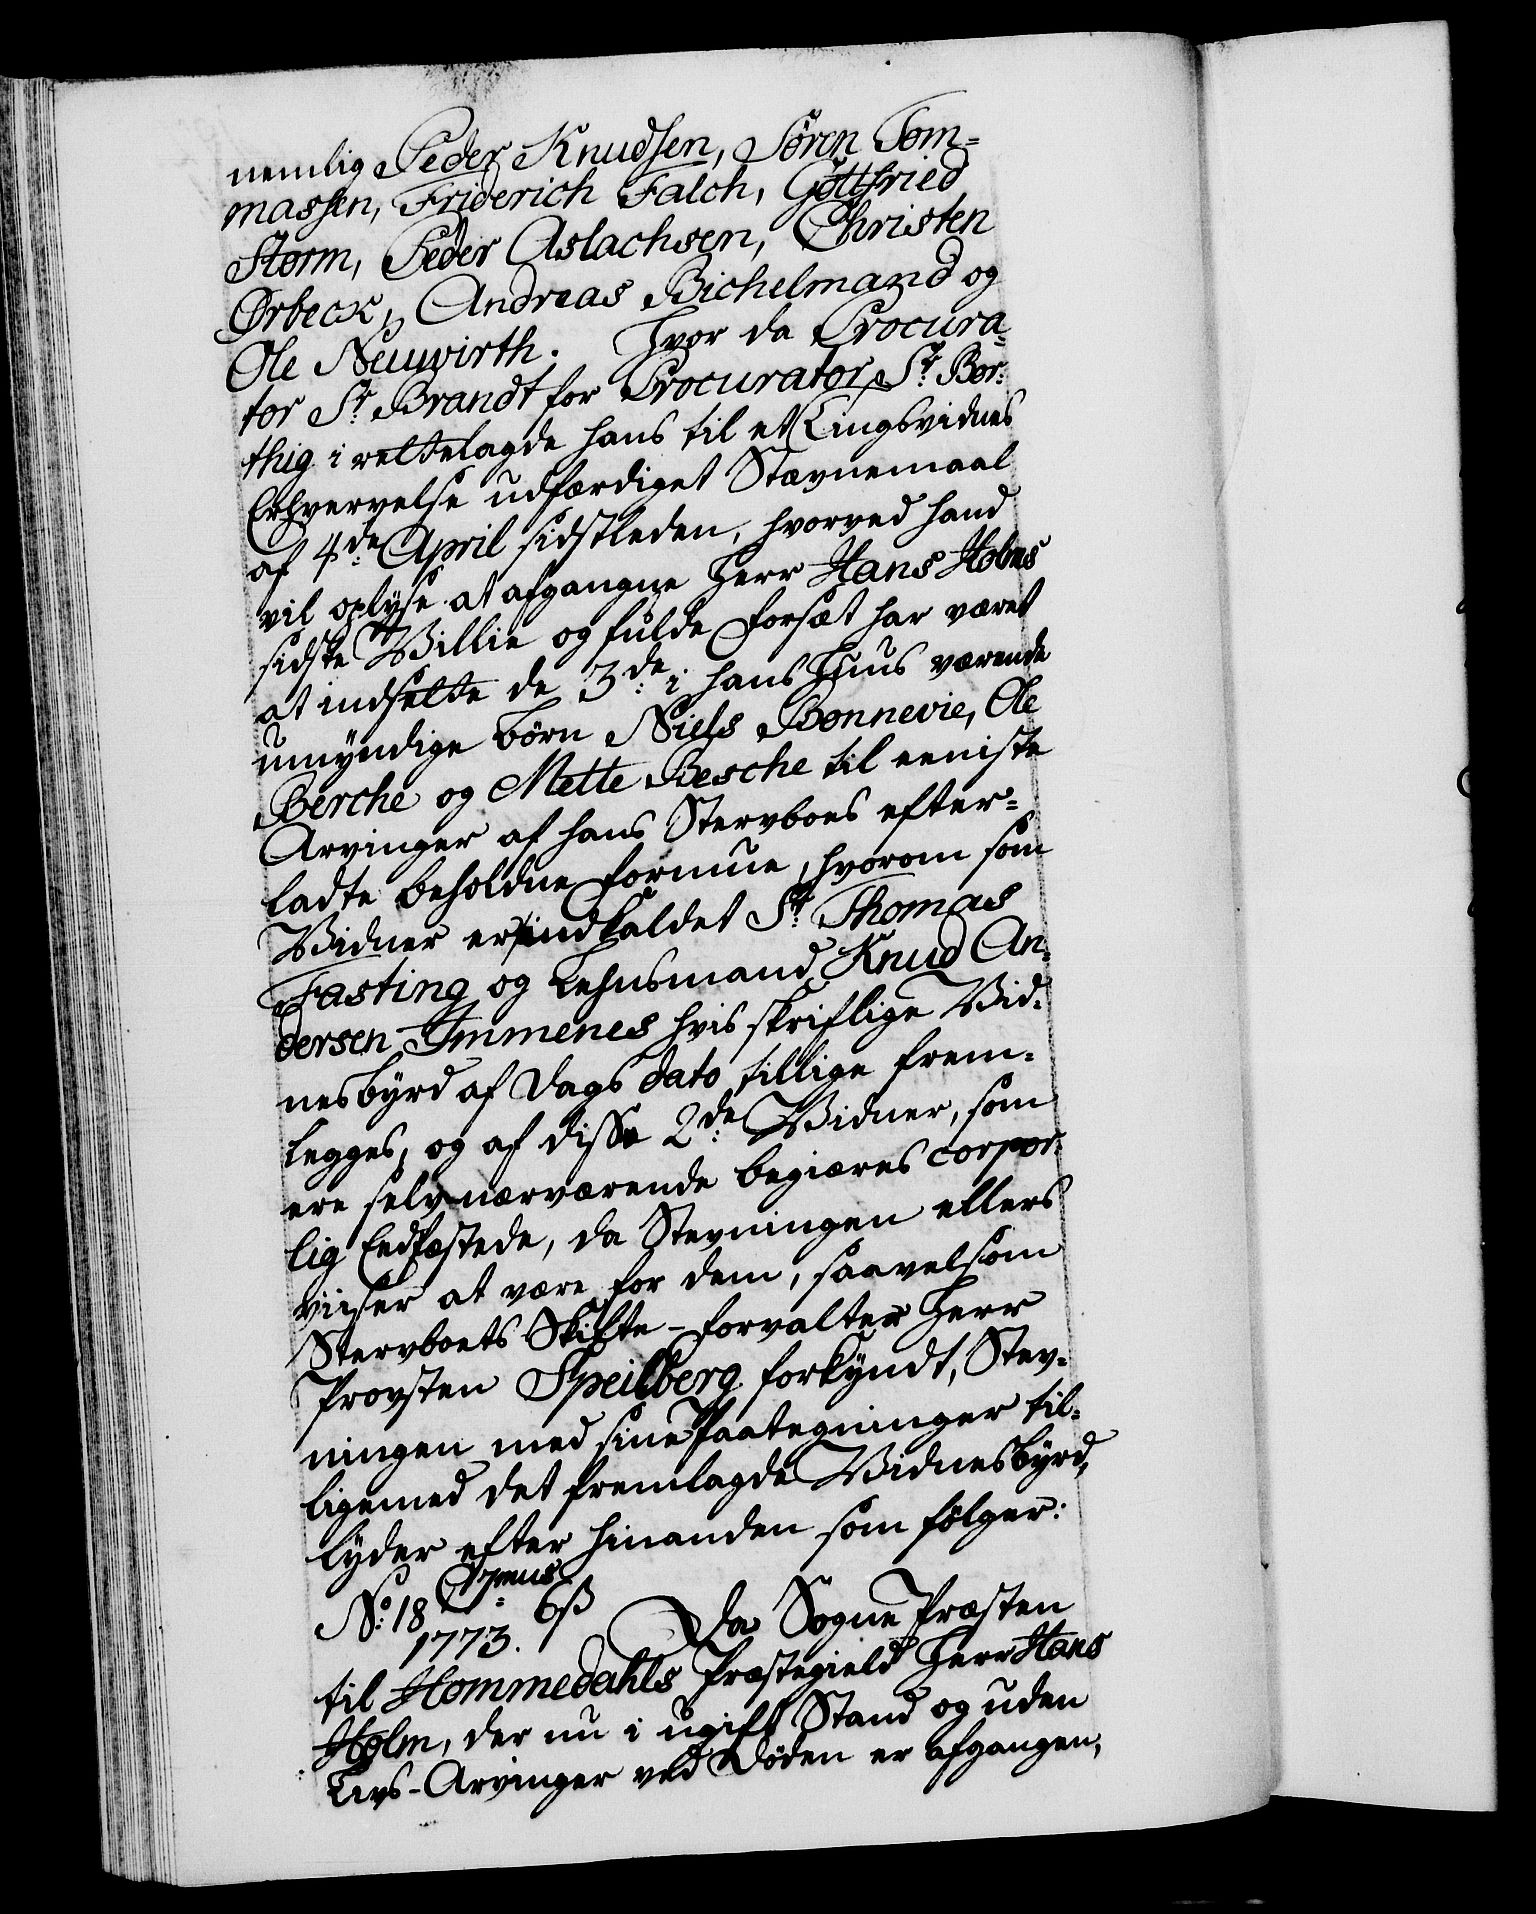 nemlig Peder Knudsen, Sören Tom-
massen, Friderich Falch, Gottfried
Storm, Peder Aslachsen, Christen
Ørbeck, Andreas Bichelmand og
Ole Neuwirth. Hvor da Procura-
tor Sr. Brandt for Procurator Sr. Bor-
thig i rettelagde hans til et Tingsvidnes
Erhvervelse udfærdiget Stævnemaal
af 4de: April sidstleden, hvorved hand
vil oplyse at afgangne Herr Hans Holms
sidste Villie og fulde Forsæt har været
at indsette de 3de: i hans Huus værende
umyndige børn Niels Bonnevie, Ole
Berche og Mette Besche til eeniste
Arvinger af hans Stervboes efter-
ladte beholdne Formue, hvorom som
Vidner er indkaldet Sr. Thomas
Fasting og Lehnsmand Knud An-
dersen Immenes hvis skriftlige Vid-
nesbyrd af Dags dato tillige frem-
legges, og af disse 2de: Vidner, som
ere selv nærværende begiæres corpor-
lig Eedfæstede, da Stevningen ellers
viiser at være for dem, saavelsom
Stervboets Skifte-Forvalter Herr
Provsten Speilberg forkyndt, Stev-
ningen med sine Paategninger til-
ligemed det fremlagde Vidnesbyrd,
lyder efter hinanden som følger:
No: 18 C. 7mus 6 ß
1773. Da Sogne Præsten
til Hommedahls Præstegield Herr Hans
Holm, der nu i ugift Stand og uden
Livs-Arvinger ved Døden er afgangen,